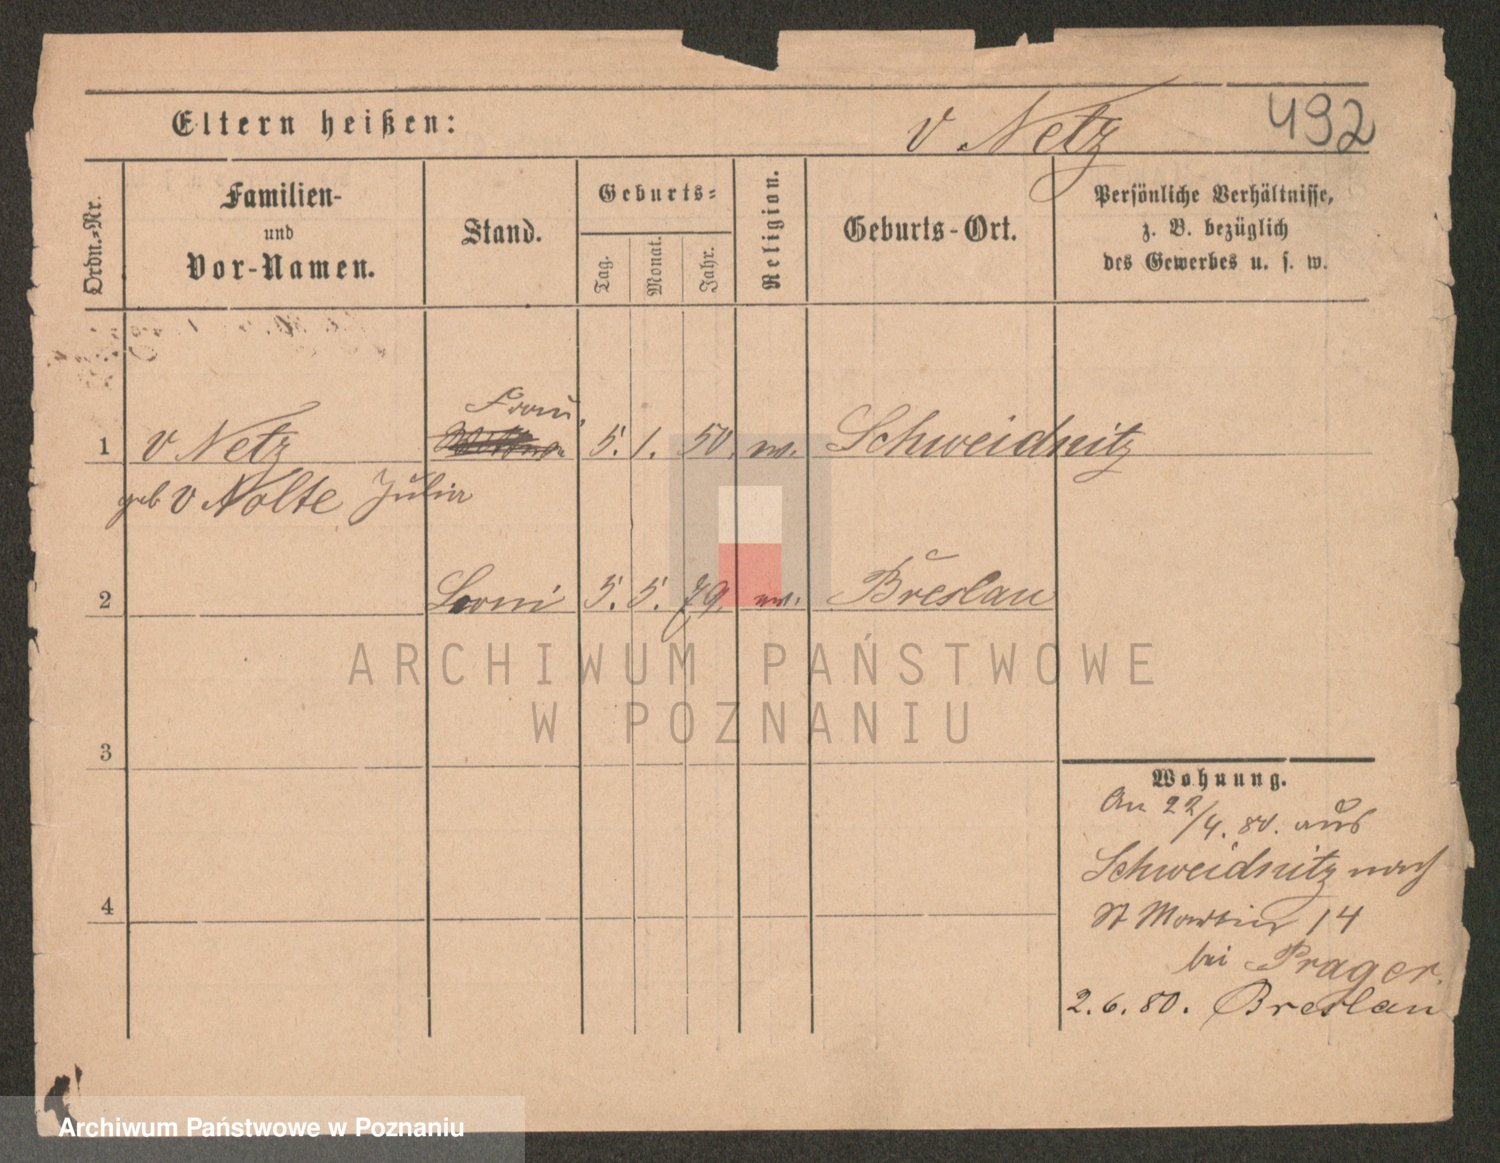 Eltern heißen:
v. Netz
492
Ordn.-Nr.
Familien-
und
Vor-Namen.
Stand.
Geburts-
Tag.
Monat.
Jahr.
Religion.
Geburts-Ort.
Persönliche Verhältnisse,
z. B. bezüglich
des Gewerbes u. s. w.
Frau
1 v Netz 5. 1. 50. ev. Schweidnitz
geb v Nolte Julia
2 5. 5. 79. ev. Breslau
ARCHIWUM PAŃSTWOWE
W POZNANIU
3
Wohnung.
An 22/4. 80. aus
Schweidnitz nach
4
St Martin 14
bei Prager.
2. 6. 80. Breslau
Archiwum Państwowe w Poznaniu